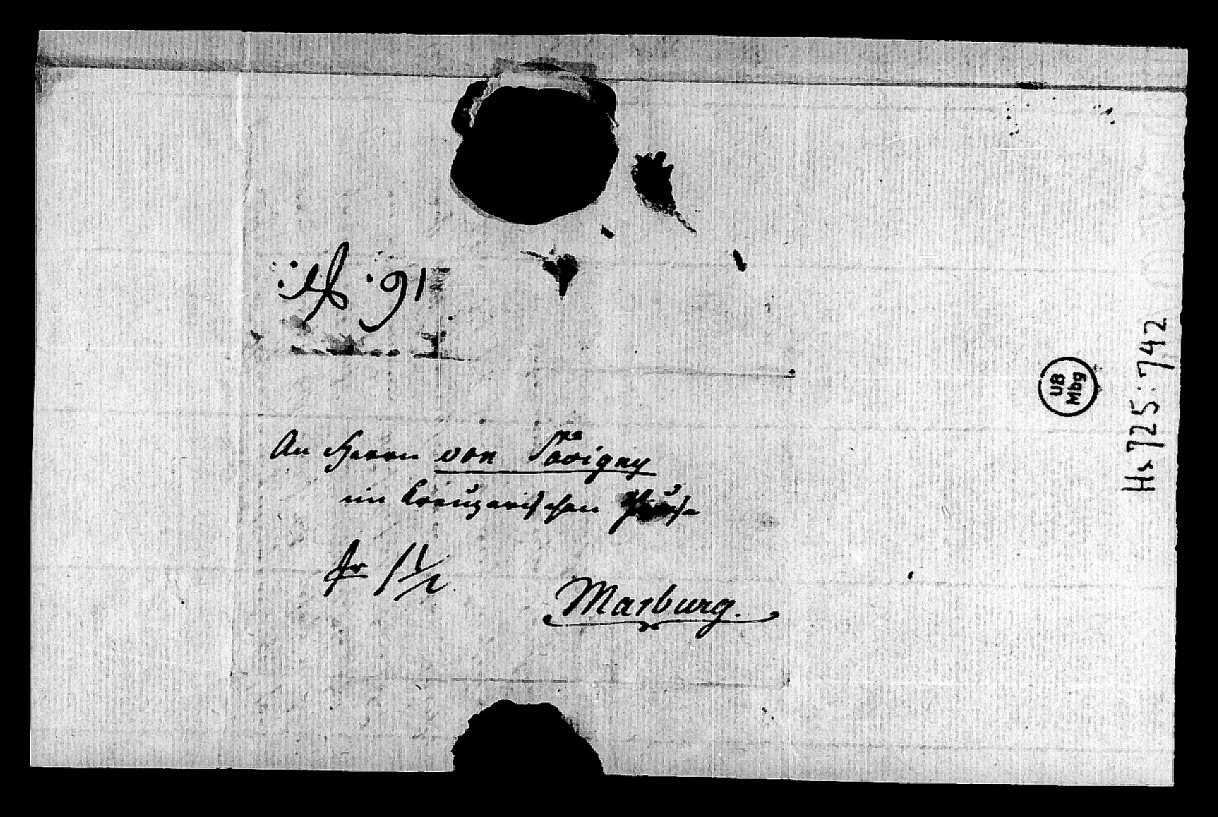 :A :91
An Herrn von Savigny
im Kreuzerischen Hause
fr 1 1/2
Marburg.
UB Mbg
Hs 725:742